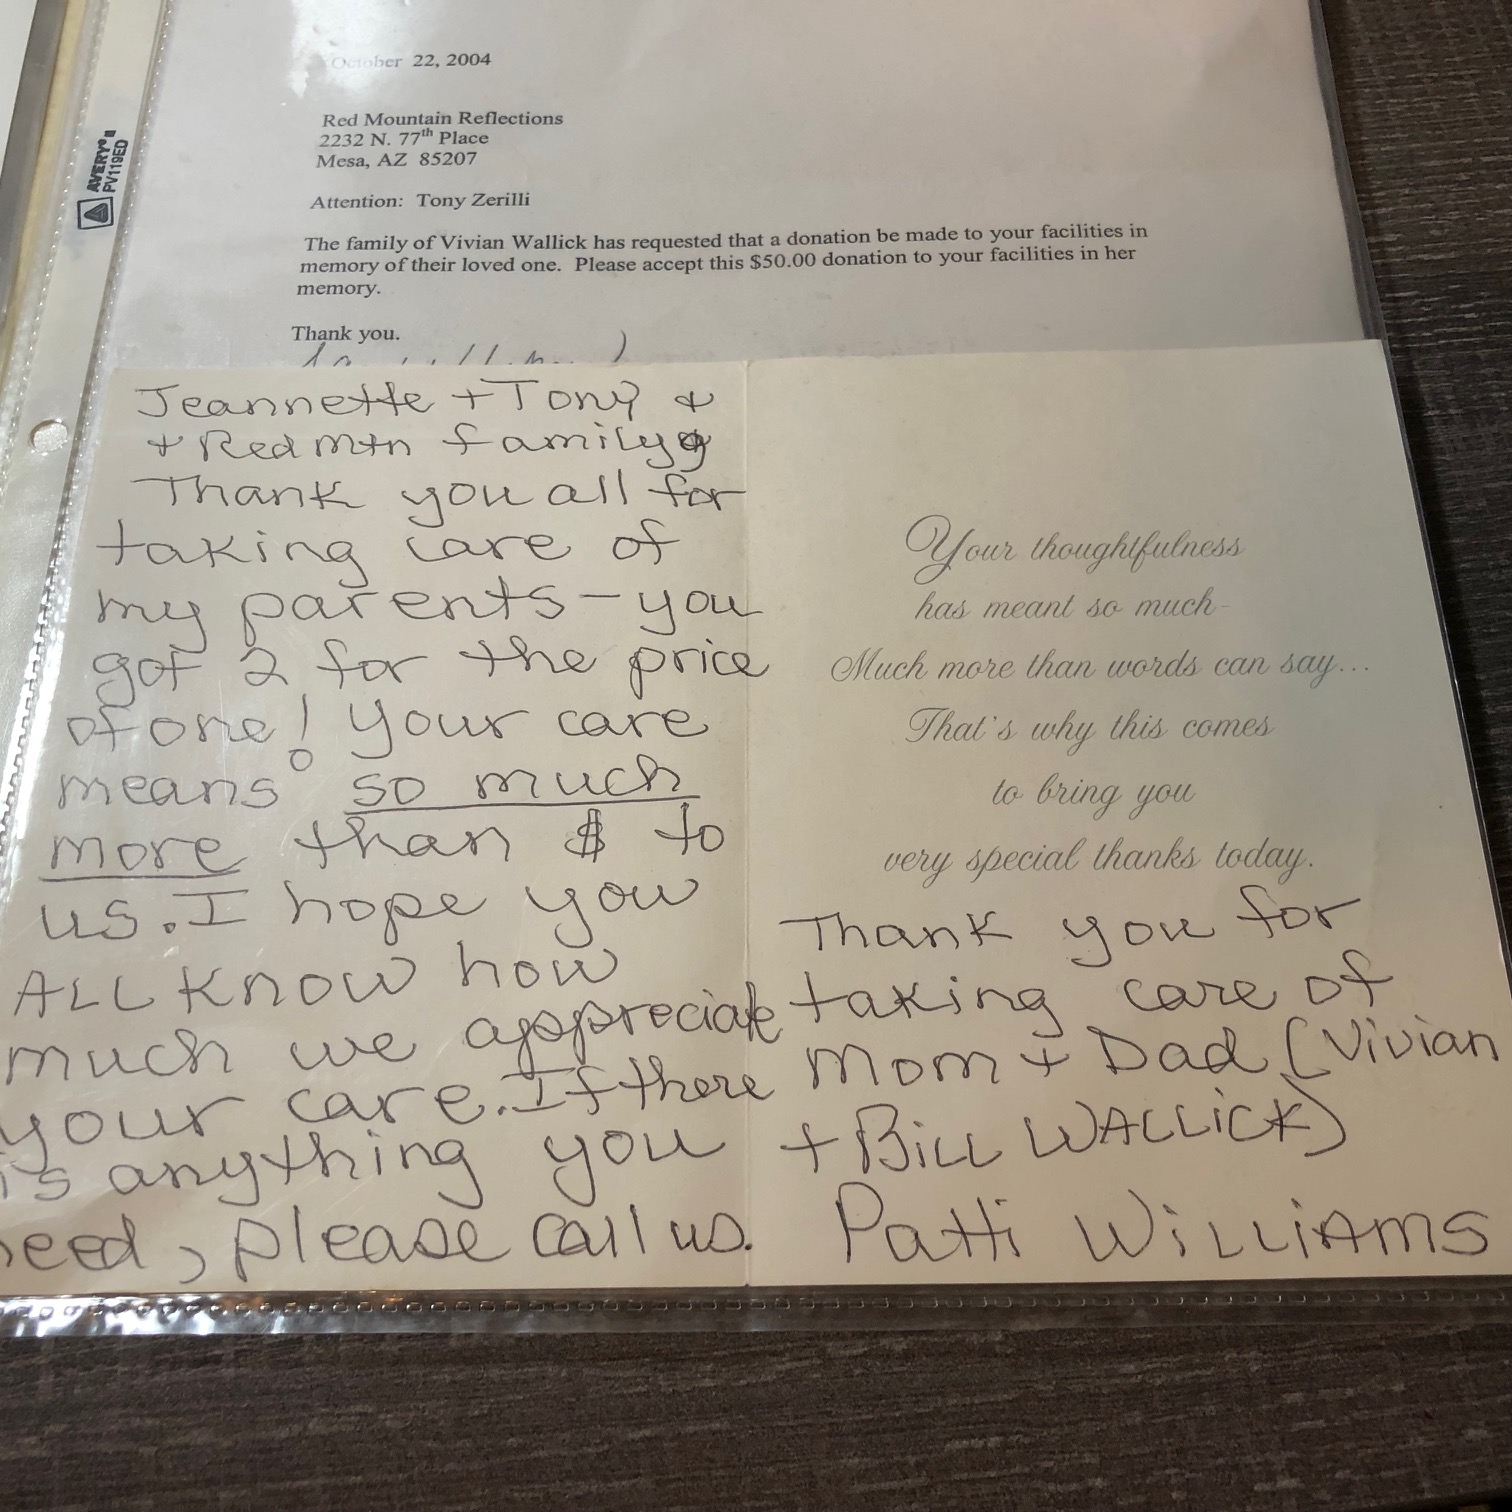 October 22, 2004
AVERY®
PV119ED
Red Mountain Reflections
2232 N. 77th Place
Mesa, AZ 85207
Attention: Tony Zerilli
The family of Vivian Wallick has requested that a donation be made to your facilities in
memory of their loved one. Please accept this $50.00 donation to your facilities in her
memory.
Thank you.
Jeannette + Tony &
+ Red Mtn family
Thank you all for
taking care of
my parents - you
got 2 for the price
of one! Your care
means so much
more than $ to
us. I hope you
ALL KNOW how
much we appreciate
your care. If there
is anything you
need, please call us.
Your thoughtfulness
has meant so much-
Much more than words can say...
That's why this comes
to bring you
very special thanks today.
Thank you for
taking care of
Mom + Dad (Vivian
+ BILL WALLICK)
Patti WILLIAMS